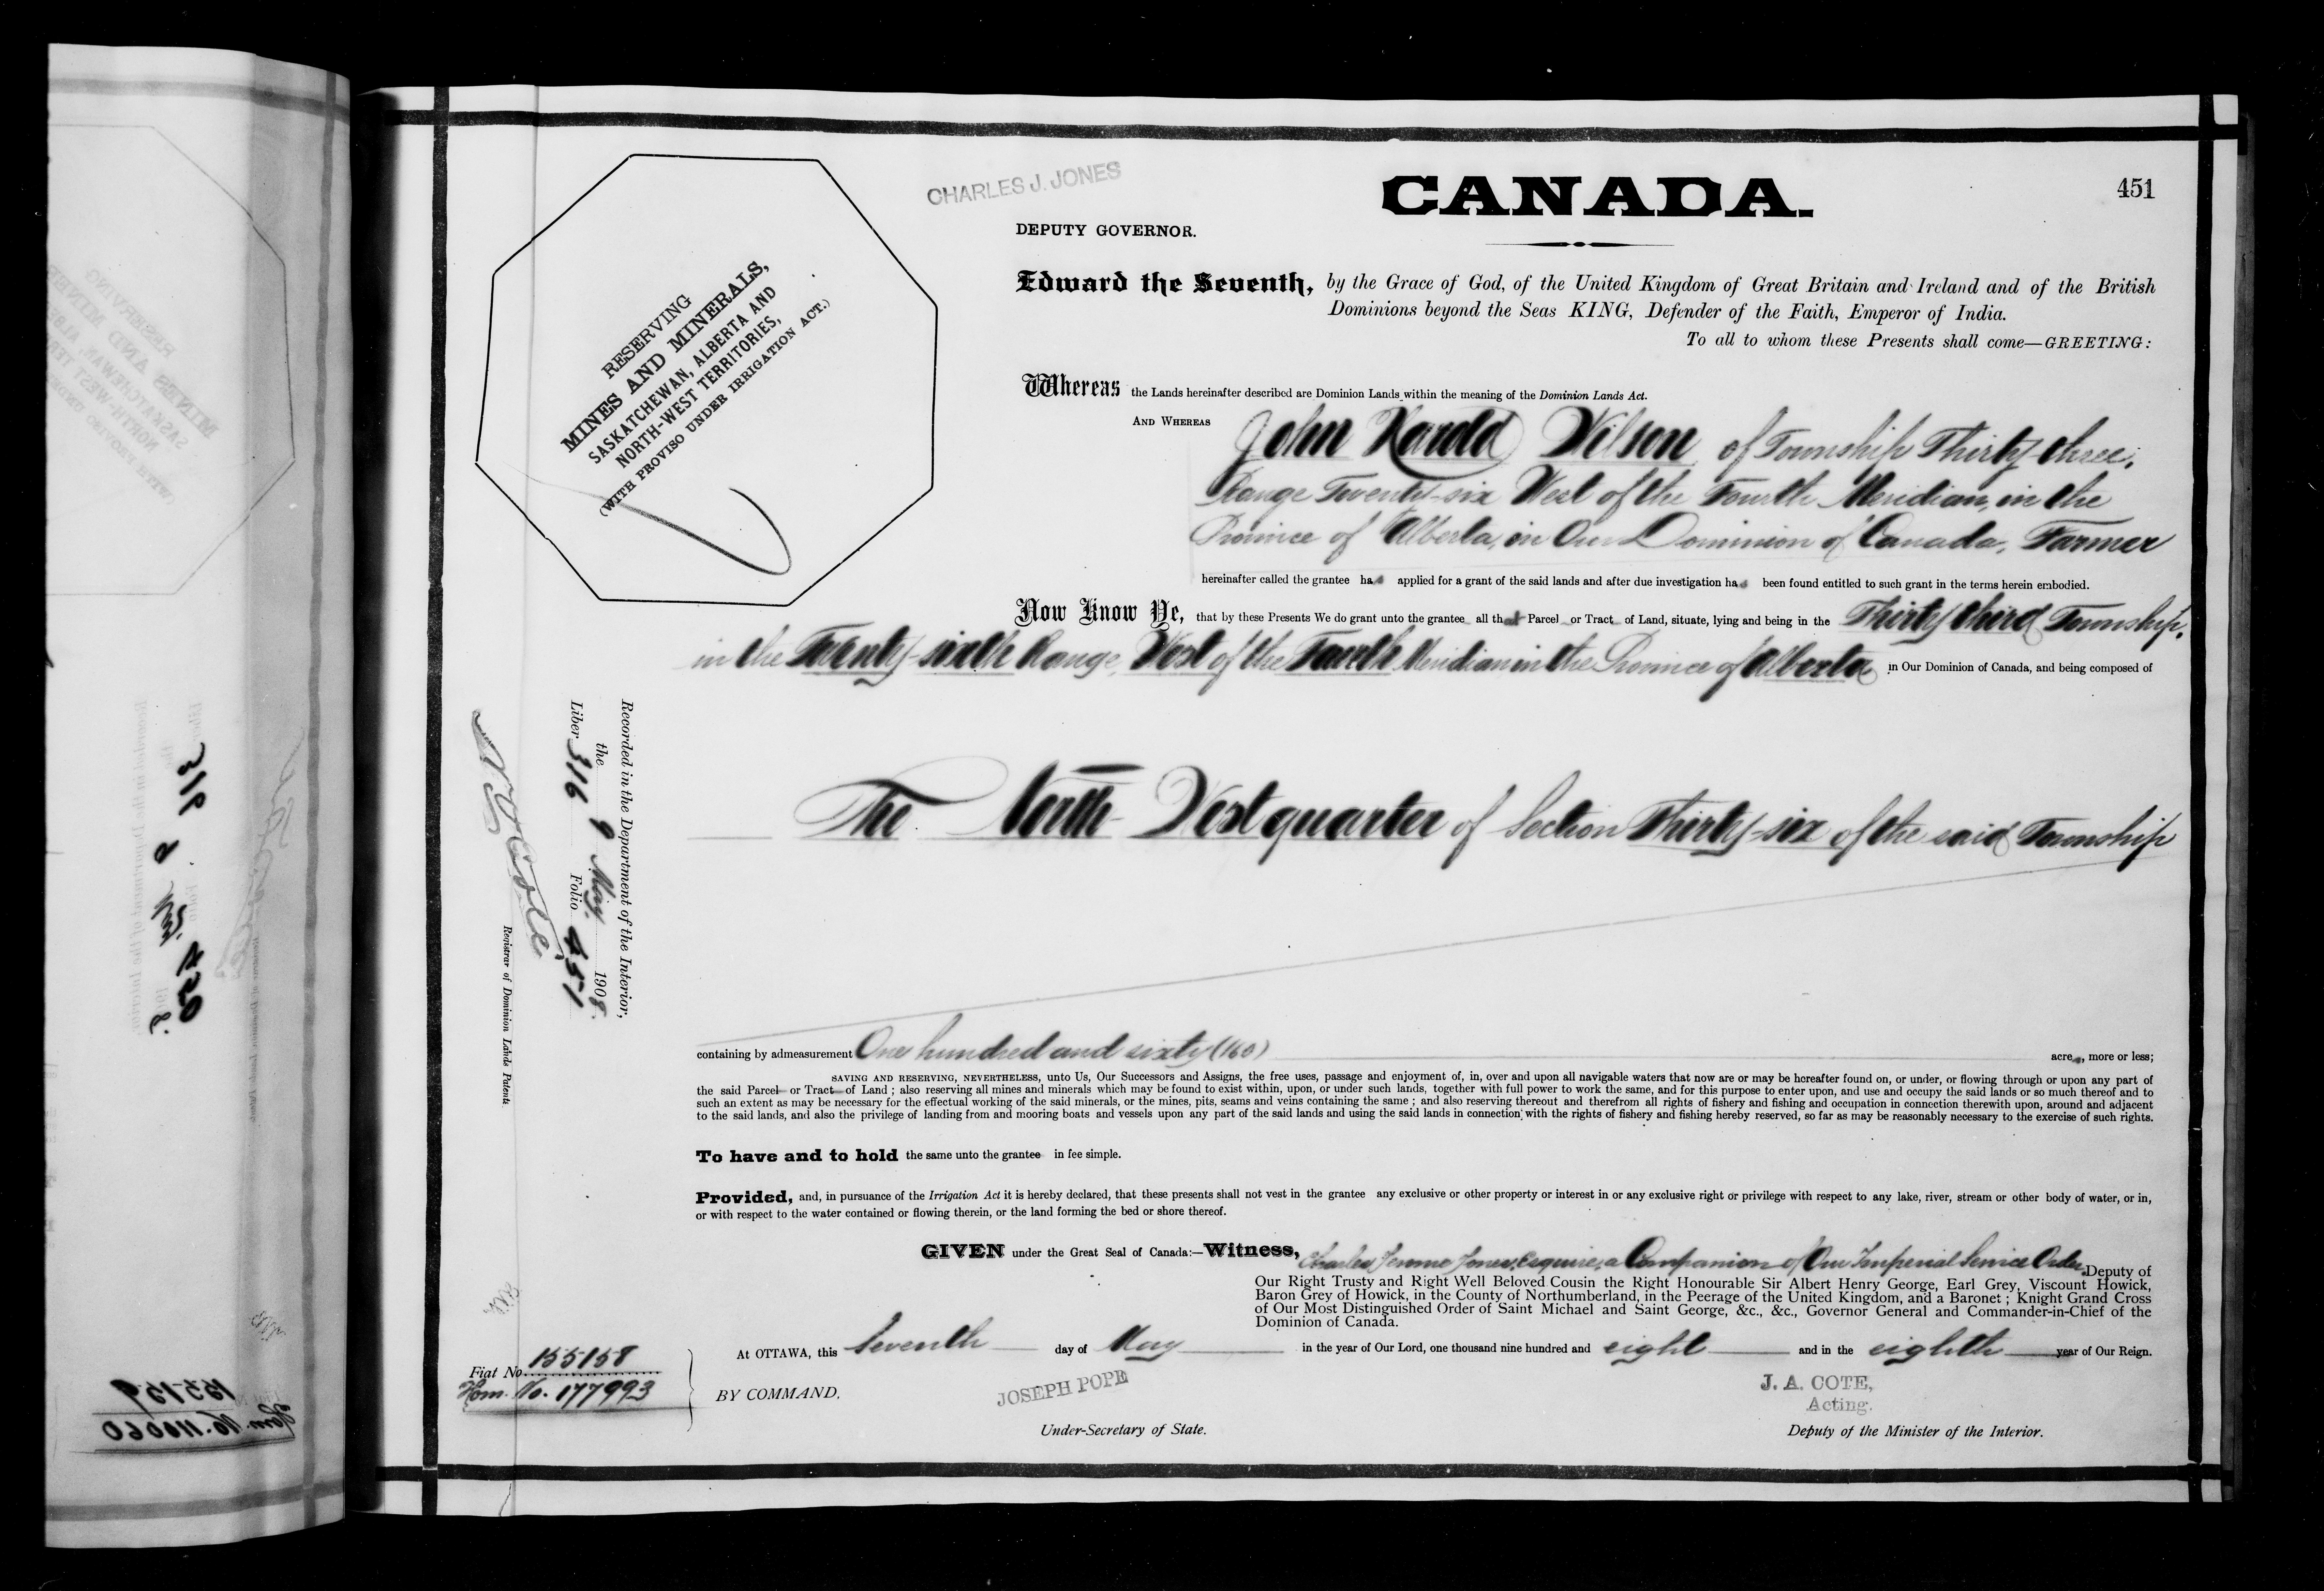 CHARLES J. JONES
CANADA.
451
DEPUTY GOVERNOR.
RESERVING
MINES AND MINERALS,
SASKATCHEWAN, ALBERTA AND
NORTH-WEST TERRITORIES,
(WITH PROVISO UNDER IRRIGATION ACT.)
Edward the Seventh, by the Grace of God, of the United Kingdom of Great Britain and Ireland and of the British
Dominions beyond the Seas KING, Defender of the Faith, Emperor of India.
To all to whom these Presents shall come—GREETING:
Whereas the Lands hereinafter described are Dominion Lands within the meaning of the Dominion Lands Act.
AND WHEREAS John Harold Wilson of Township Thirty-three,
Range Twenty-six West of the Fourth Meridian, in the
Province of Alberta, in Our Dominion of Canada, Farmer
hereinafter called the grantee has applied for a grant of the said lands and after due investigation has been found entitled to such grant in the terms herein embodied.
Now Know Ye, that by these Presents We do grant unto the grantee all that Parcel or Tract of Land, situate, lying and being in the Thirty third Township,
in the Twenty-sixth Range, West of the Fourth Meridian in the Province of Alberta in Our Dominion of Canada, and being composed of
The North-West quarter of Section Thirty-six of the said Township
Recorded in the Department of the Interior,
the 9 May 1908.
Liber 316 Folio 451
Registrar of Dominion Lands Patents.
containing by admeasurement One hundred and sixty (160) acres, more or less;
SAVING AND RESERVING, NEVERTHELESS, unto Us, Our Successors and Assigns, the free uses, passage and enjoyment of, in, over and upon all navigable waters that now are or may be hereafter found on, or under, or flowing through or upon any part of
the said Parcel or Tract of Land ; also reserving all mines and minerals which may be found to exist within, upon, or under such lands, together with full power to work the same, and for this purpose to enter upon, and use and occupy the said lands or so much thereof and to
such an extent as may be necessary for the effectual working of the said minerals, or the mines, pits, seams and veins containing the same ; and also reserving thereout and therefrom all rights of fishery and fishing and occupation in connection therewith upon, around and adjacent
to the said lands, and also the privilege of landing from and mooring boats and vessels upon any part of the said lands and using the said lands in connection with the rights of fishery and fishing hereby reserved, so far as may be reasonably necessary to the exercise of such rights.
To have and to hold the same unto the grantee in fee simple.
Provided, and, in pursuance of the Irrigation Act it is hereby declared, that these presents shall not vest in the grantee any exclusive or other property or interest in or any exclusive right or privilege with respect to any lake, river, stream or other body of water, or in,
or with respect to the water contained or flowing therein, or the land forming the bed or shore thereof.
GIVEN under the Great Seal of Canada:—Witness, Charles Jerome Jones, Esquire, a Companion of Our Imperial Service Order, Deputy of
Our Right Trusty and Right Well Beloved Cousin the Right Honourable Sir Albert Henry George, Earl Grey, Viscount Howick,
Baron Grey of Howick, in the County of Northumberland, in the Peerage of the United Kingdom, and a Baronet ; Knight Grand Cross
of Our Most Distinguished Order of Saint Michael and Saint George, &c., &c., Governor General and Commander-in-Chief of the
Dominion of Canada.
At OTTAWA, this Seventh day of May in the year of Our Lord, one thousand nine hundred and eight and in the eighth year of Our Reign.
Fiat No. 155158
Hom. No. 177993
BY COMMAND.
JOSEPH POPE
Under-Secretary of State.
J. A. COTE,
Acting.
Deputy of the Minister of the Interior.